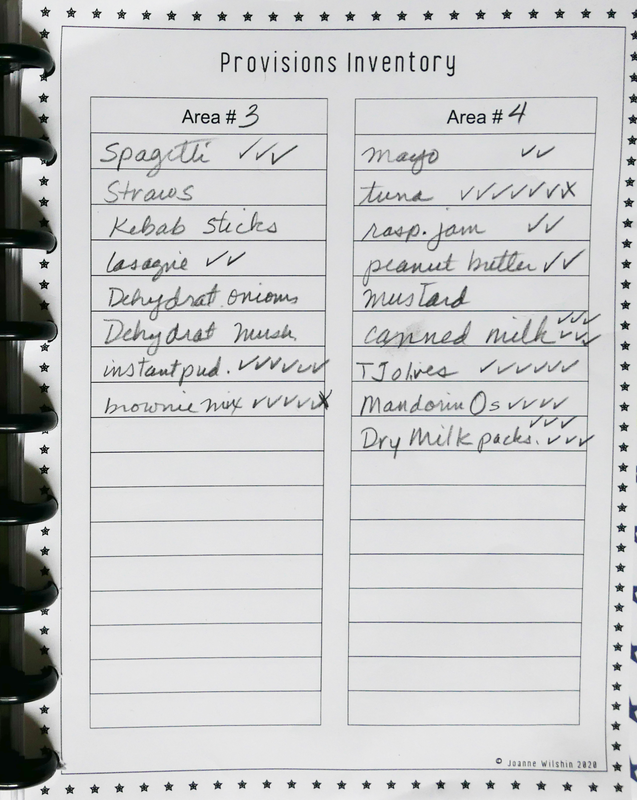 Provisions Inventory
Area # 3
Spagetti ✓✓✓
Straws
Kebab Sticks
lasagne ✓✓
Dehydrat. onions
Dehydrat Mush.
instant pud. ✓✓✓✓✓✓
brownie mix ✓✓✓✓✗
Area # 4
mayo ✓✓
tuna ✓✓✓✓✓✓✗
rasp. jam ✓✓
peanut butter ✓✓
mustard
canned milk ✓✓✓✓✓✓
TJ olives ✓✓✓✓✓✓
Mandorin Os ✓✓✓✓
Dry Milk packs. ✓✓✓✓✓✓
© Joanne Wilshin 2020